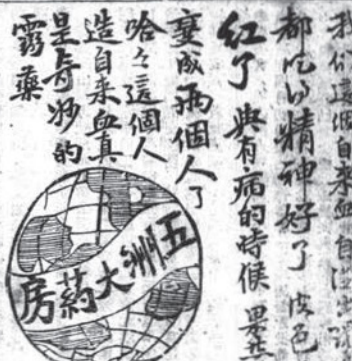 我们這個自来血自從出
都吃的精神好了 皮色
红了 與有病的時候 果然
變成兩個人了
哈々這個人
造自来血真
是奇妙的
靈藥
五洲大葯房